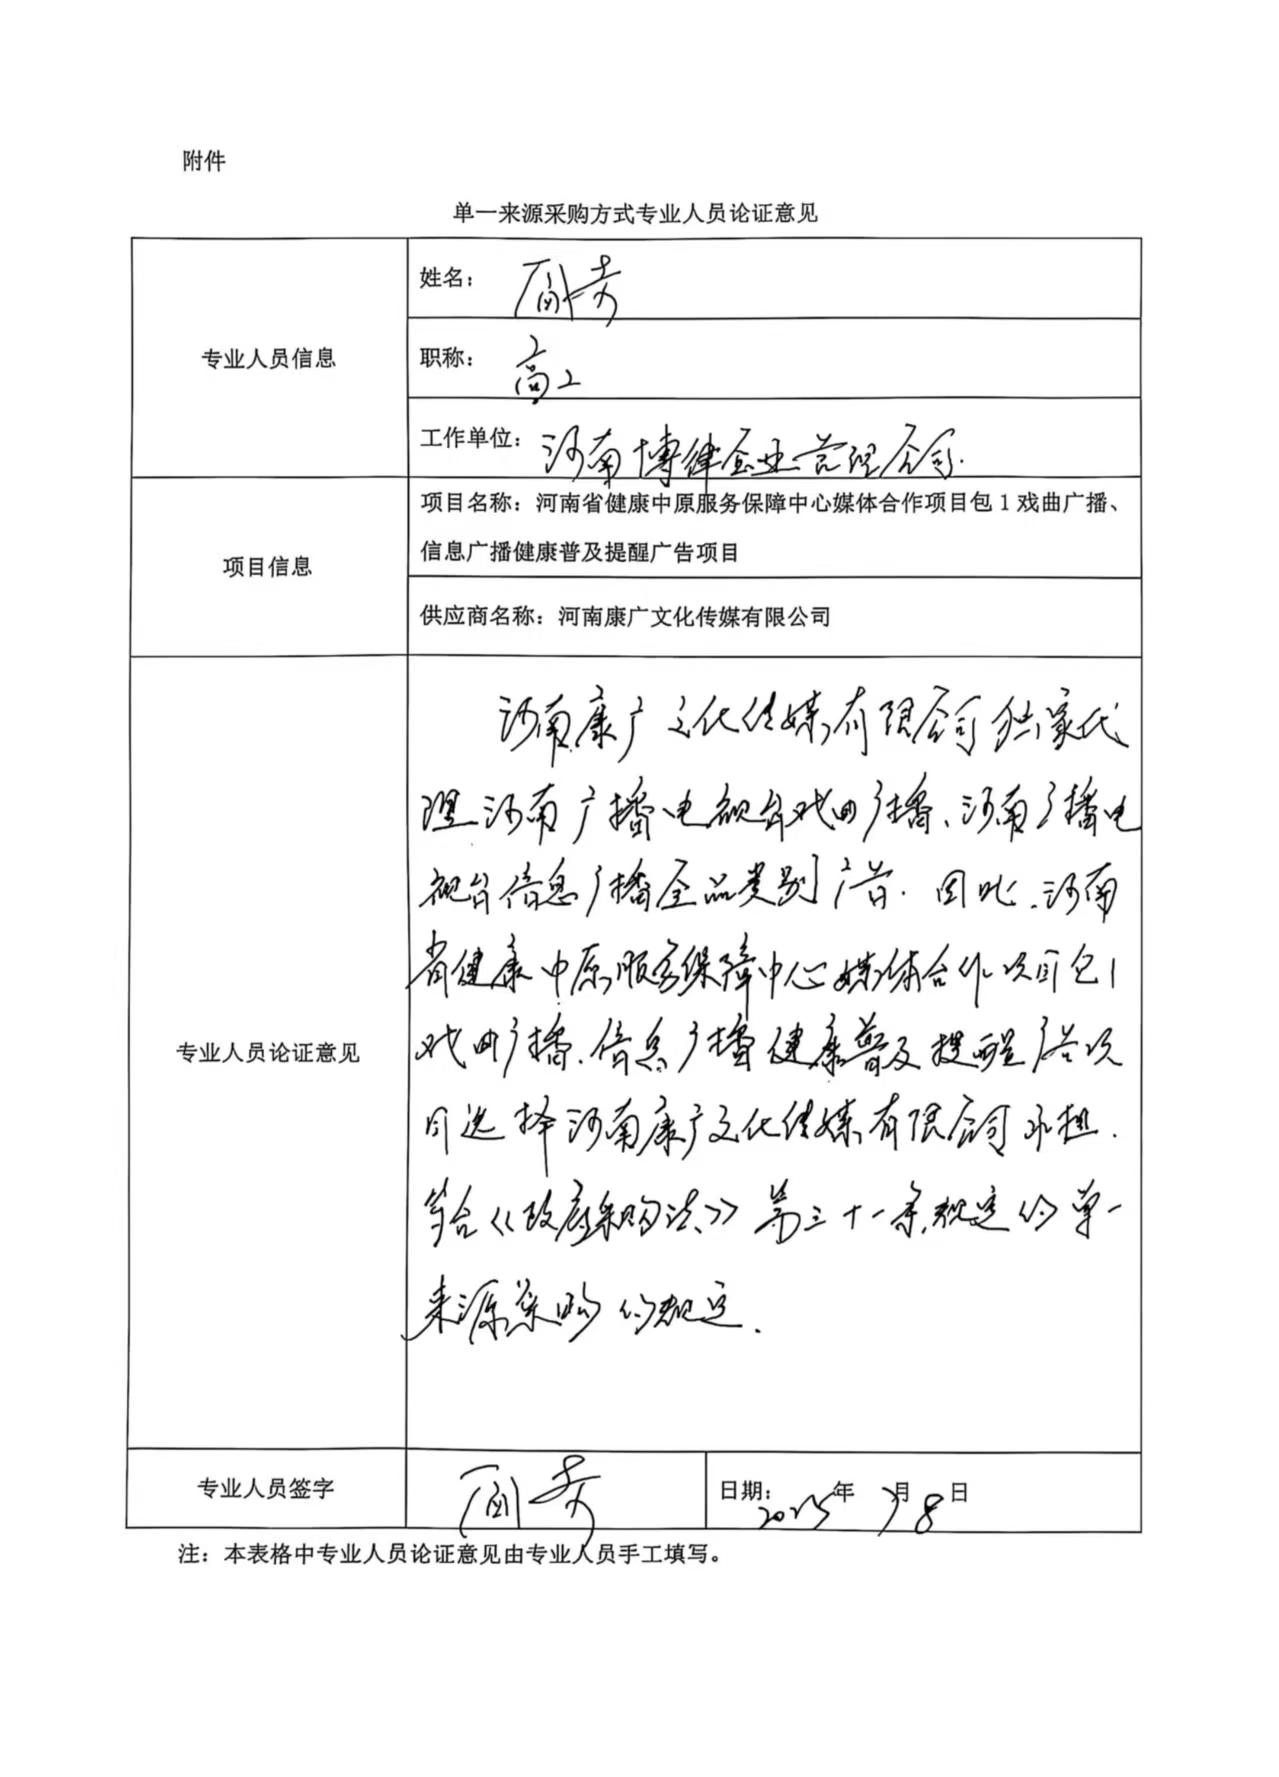 附件
单一来源采购方式专业人员论证意见
专业人员信息
姓名：
职称：高工
工作单位：河南博律企业管理公司.
项目信息
项目名称：河南省健康中原服务保障中心媒体合作项目包1戏曲广播、
信息广播健康普及提醒广告项目
供应商名称：河南康广文化传媒有限公司
专业人员论证意见
河南康广文化传媒有限公司独家代
理河南广播电视台戏曲广播、河南广播电
视台信息广播全品类别广告. 因此、河南
省健康中原服务保障中心媒体合作项目包1
戏曲广播、信息广播健康普及提醒广告项
目选择河南康广文化传媒有限公司承担.
符合《政府采购法》第三十一条规定的单一
来源采购的规定.
专业人员签字
日期：2025年 月8日
注：本表格中专业人员论证意见由专业人员手工填写。